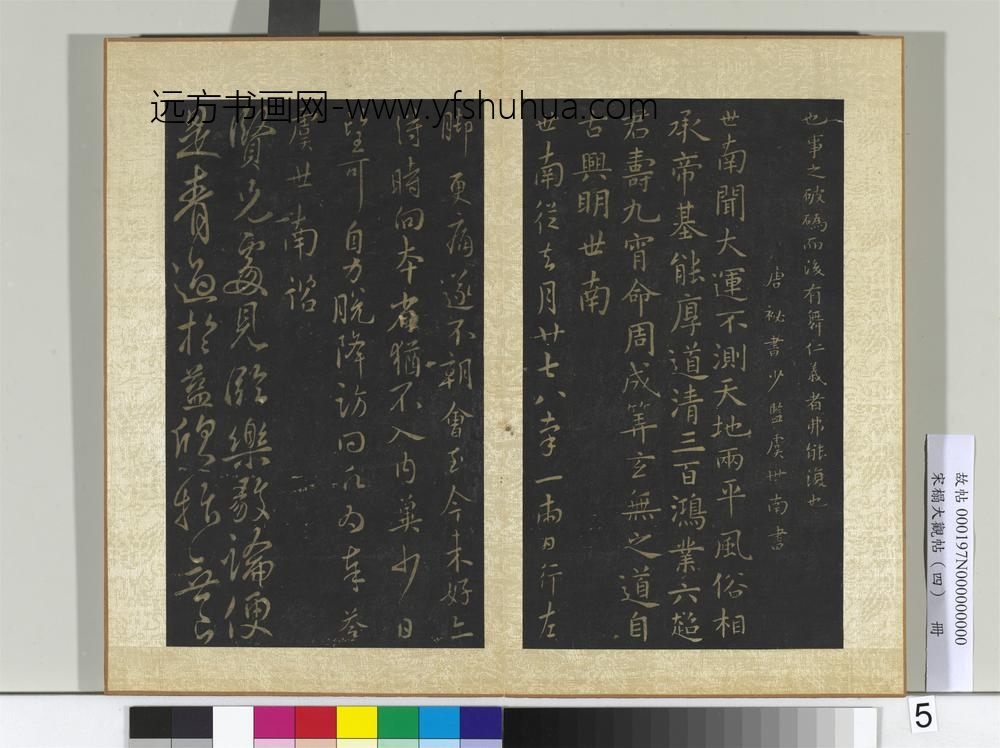 远方书画网-www.yfshuhua.com
也事之破碼而後有舞仁義者弗能滇也
唐秘書少監虞世南書
世南聞大運不測天地兩平風俗相
承帝基能厚道清三百鴻業六超
君壽九霄命周成筭玄無之道自
古興明世南
世南從去月廿七八率一兩日行左
脚更痛遂不朝會至今未好亦
得時向本省猶不入內冀少日
望可自力脫降訪問爪為奉荅
虞世南諮
賢兄處見臨樂毅論便
是青過於益欣抃無已
故帖 000197N000000000
宋榻大觀帖（四） 冊
5